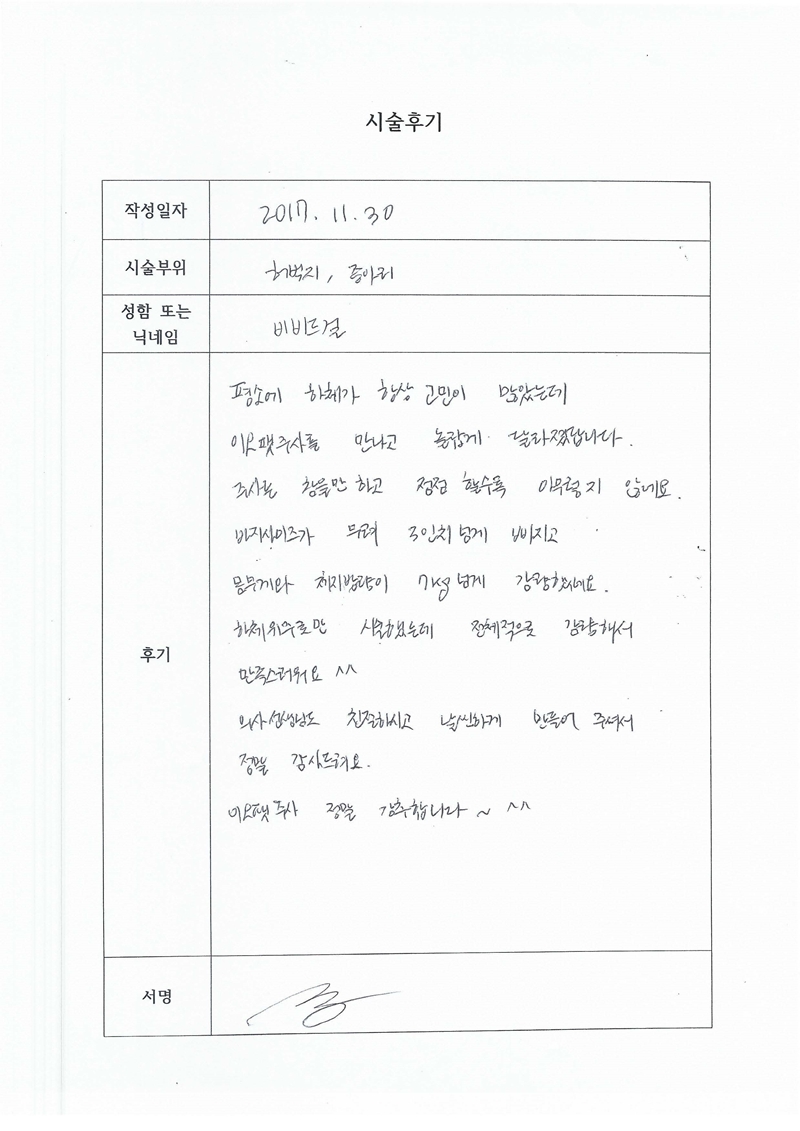 시술후기
작성일자 2017. 11. 30
시술부위 허벅지, 종아리
성함 또는
닉네임 비비드걸
후기
평소에 하체가 항상 고민이 많았는데
이오팻주사를 만나고 놀랍게 달라졌답니다.
주사는 참을만 하고 점점 할수록 아무렇지 않네요.
바지사이즈가 무려 3인치 넘게 빠지고
몸무게와 체지방량이 7kg 넘게 감량했네요.
하체위주로만 시술했는데 전체적으로 감량해서
만족스러워요 ^^
의사선생님도 친절하시고 날씬하게 만들어 주셔서
정말 감사드려요.
이오팻주사 정말 강추합니다 ~ ^^
서명